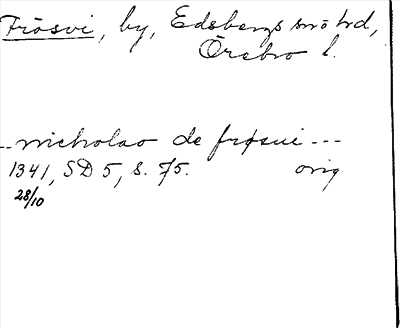 Frösvi, by, Edsbergs snö hd,
Örebro l.
.. nicholao de frøsui ...
1341, SD 5, s. 75. orig
28/10